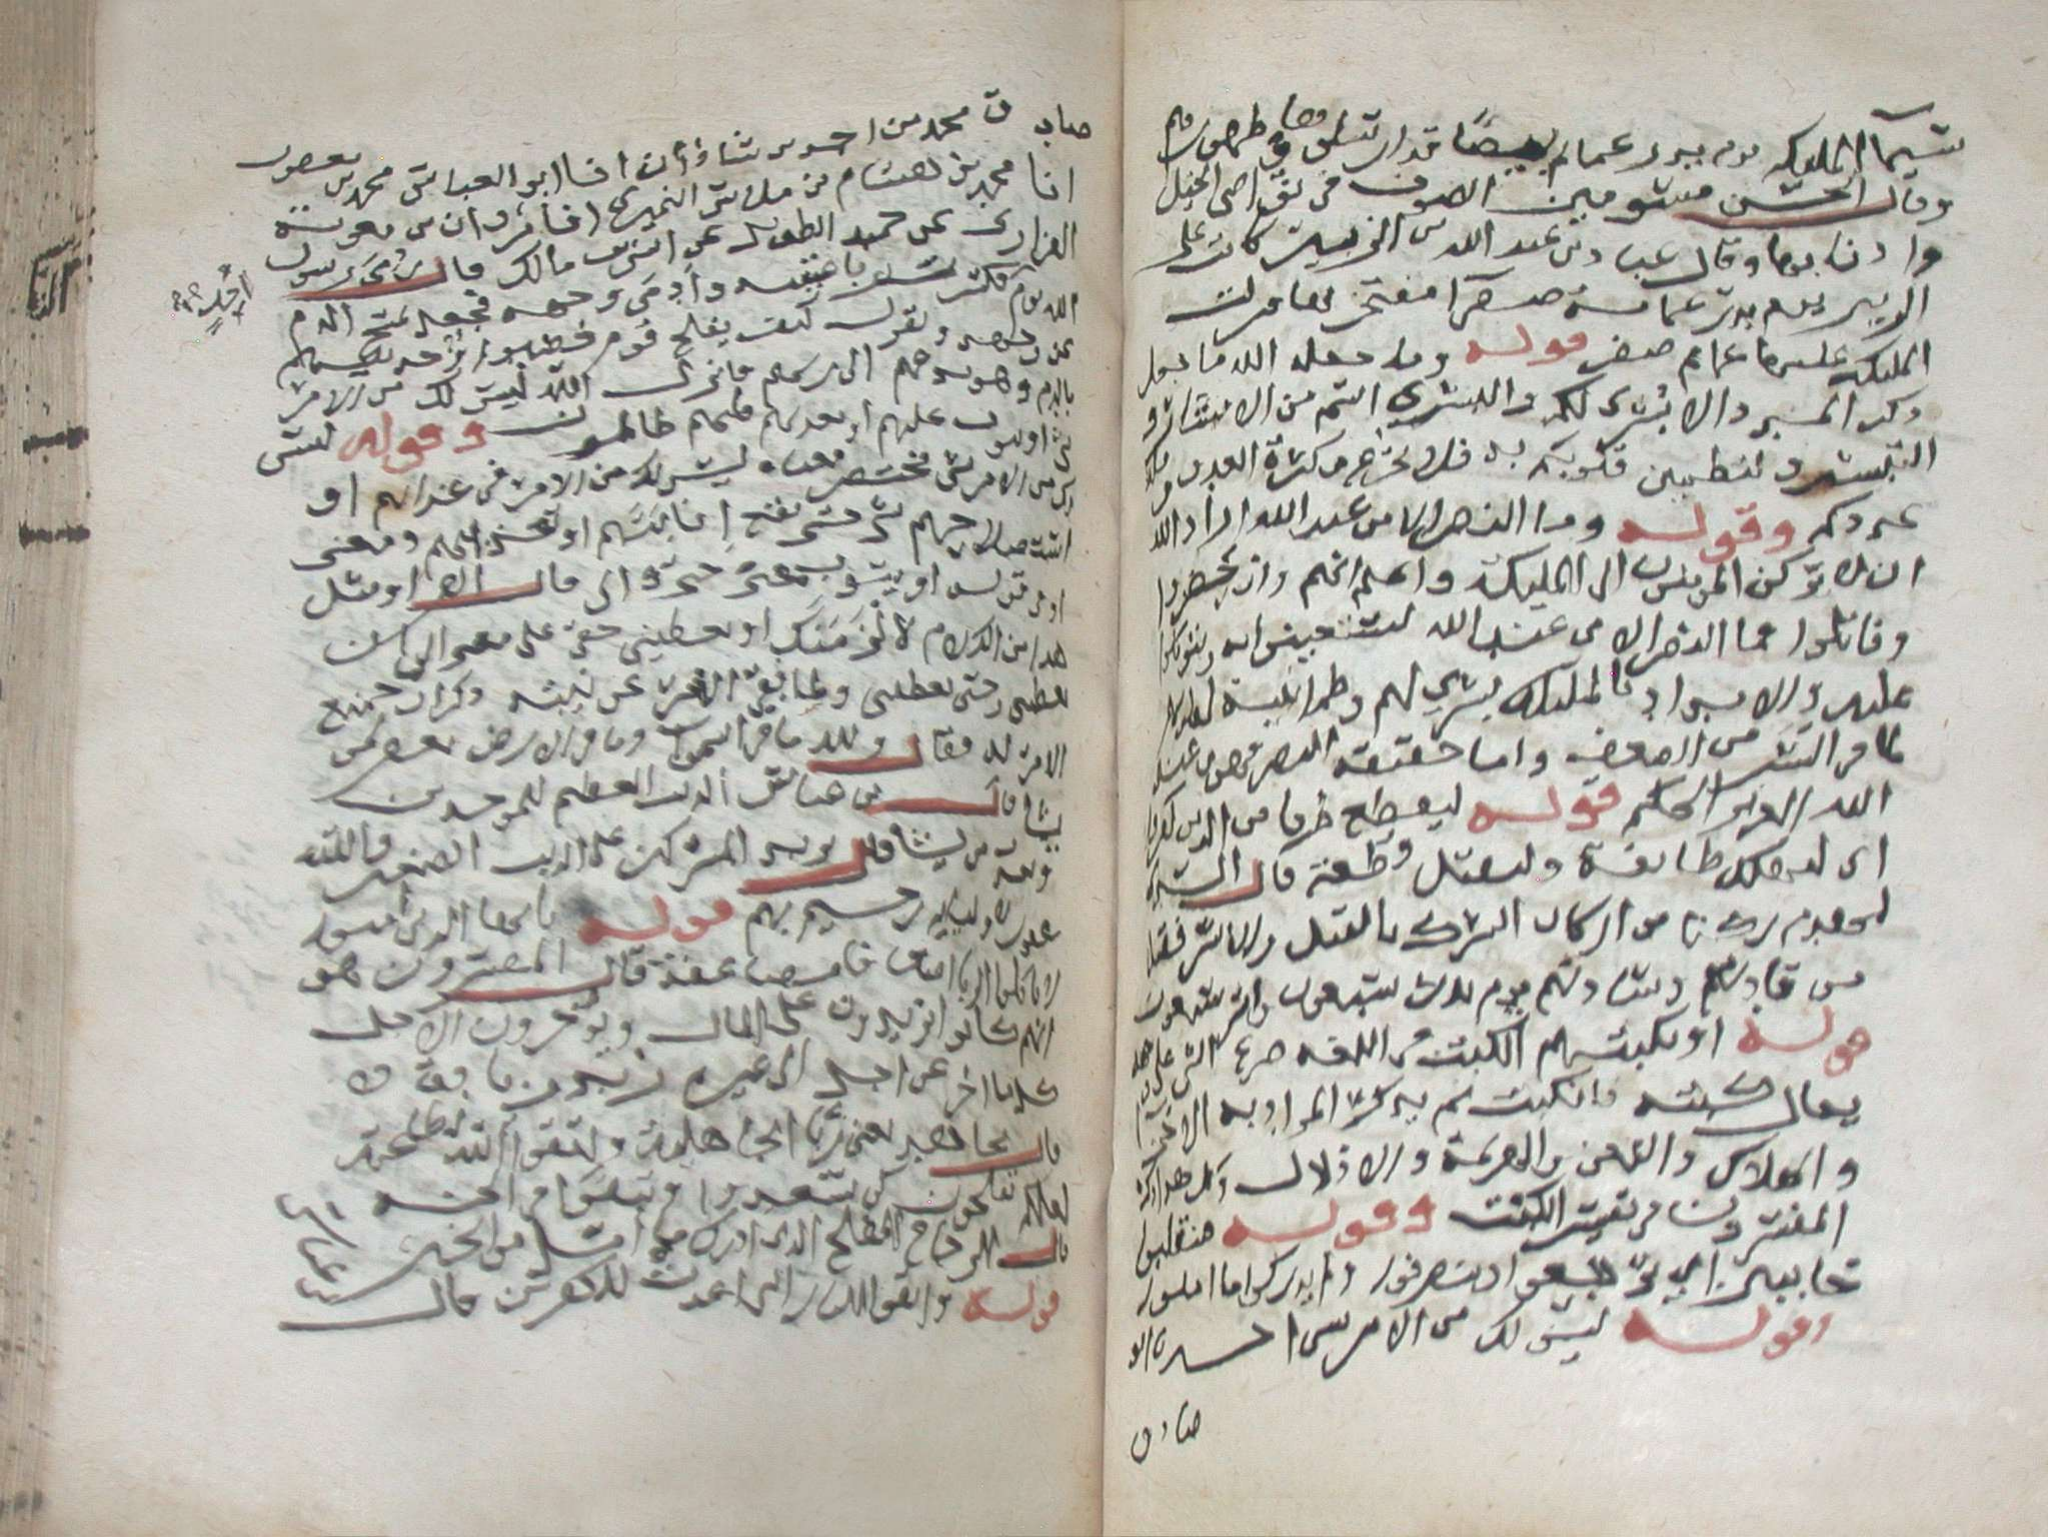 سيما الملىكه يوم بدر عمايم بيضا قد ارسلوها فى ظهورهم
وقال الحسن مسومين الصوف فى نواصى الخيل
واذنابها وقال عباد بن عبد الله بن الزبير كانت على
الزبير يوم بدر عمامة صفرآ معتجر بها ونزلت
الملىكة عليها عمايم صفر قوله وما جعله الله ما جعل
ذكر المدد الا بشرى لكم والبشرى اسم من الابشار و
التبشير ولتطمين قلوبكم به فلا تجزع من كثرة العدو وقلة
عددكم وقوله وما النصر الا من عند الله اراد الله
ان لا يركن المومنون الى المليكة واعلم انهم وان حضروا
وقاتلوا فما النصر الا من عند الله ليستعينوا به ويتوكلوا
عليه والامداد بالمليكة بشرى لهم وطمانينة لقلوبهم
لما فى البشر من الضعف واما حقيقة النصر فهو من عند
الله العزيز الحكيم قوله ليقطع طرفا من الذين كفروا
اى ليهلك طايفة وليقتل قطعة قال السدى
ليهدم ركنا من اركان الشرك بالقتل والاسر فقتل
من قادتهم وسادتهم يوم بدر سبعون واسر سبعون
قوله او يكبتهم الكبت فى اللغه صرع الشى على وجهه
يقال كبته فانكبت ثم يذكر والمراد به الاخزآ
والهلاك واللعن والهزيمة والاذلال وكل هذا ذكره
المفسرون فى تفسير الكبت وقوله فينقلبوا
خايبين اى يرجعوا وينصرفوا ولم يدركوا ما املوا
وقوله ليس لك من الامر شى احـــدنا ابو
صادق
صادق محمد بن احمد بن شاذان انا ابو العباس محمد بن يعقوب
انا محمد بن هشام بن ملاس النميرى انا مروان بن معوية
الفزارى عن حميد الطويل عن انس بن مالك قال شج رسول
الله يوم احد فكسرت رباعيته وادمى وجهه فجعل يمسح الدم
عن وجهه ويقول كيف يفلح قوم خضبوا وجه نبيهم
بالدم وهو يدعوهم الى ربهم فانزل الله ليس لك من الامر
شى او يتوب عليهم او يعذبهم فانهم ظالمون وقوله ليس
لك من الامر شى مختصر معناه ليس لك من الامر فى عذابهم او
استصلاحهم شى حتى يقع انابتهم او تعذيبهم ومعنى
او فى قوله او يتوب بمعنى حتى والى قال الفرا ومثل
هذا من الكلام لالزمنك او تعطينى حقى على معنى الى ان
تعطينى وحتى تعطينى ولما نفى الامر عن نبيه ذكر ان جميع
الامر له فقال ولله ما فى السموات وما فى الارض يغفر لمن
يشا قال بن عباس الذنب العظيم للموحدين
ويعذب من يشا قال يريد المشركين على الذنب الصغير والله
غفور لاوليايه رحيم بهم قوله يا ايها الذين امنوا
لا تاكلوا الربا اضعافا مضاعفة قال المفسرون هو
انهم كانوا يزيدون على المال ويوخرون الاجل
كلما اخر عن اجل الى غيره زيد زيادة
قال مجاهد يعنى ربا الجاهلية واتقوا الله
لعلكم تفلحون لكى تسعدوا وتبقوا فى الجنه
قال الزجاج المفلح الذى ادرك ما امل من الخير
قوله واتقوا النار التى اعدت للكفرين قال